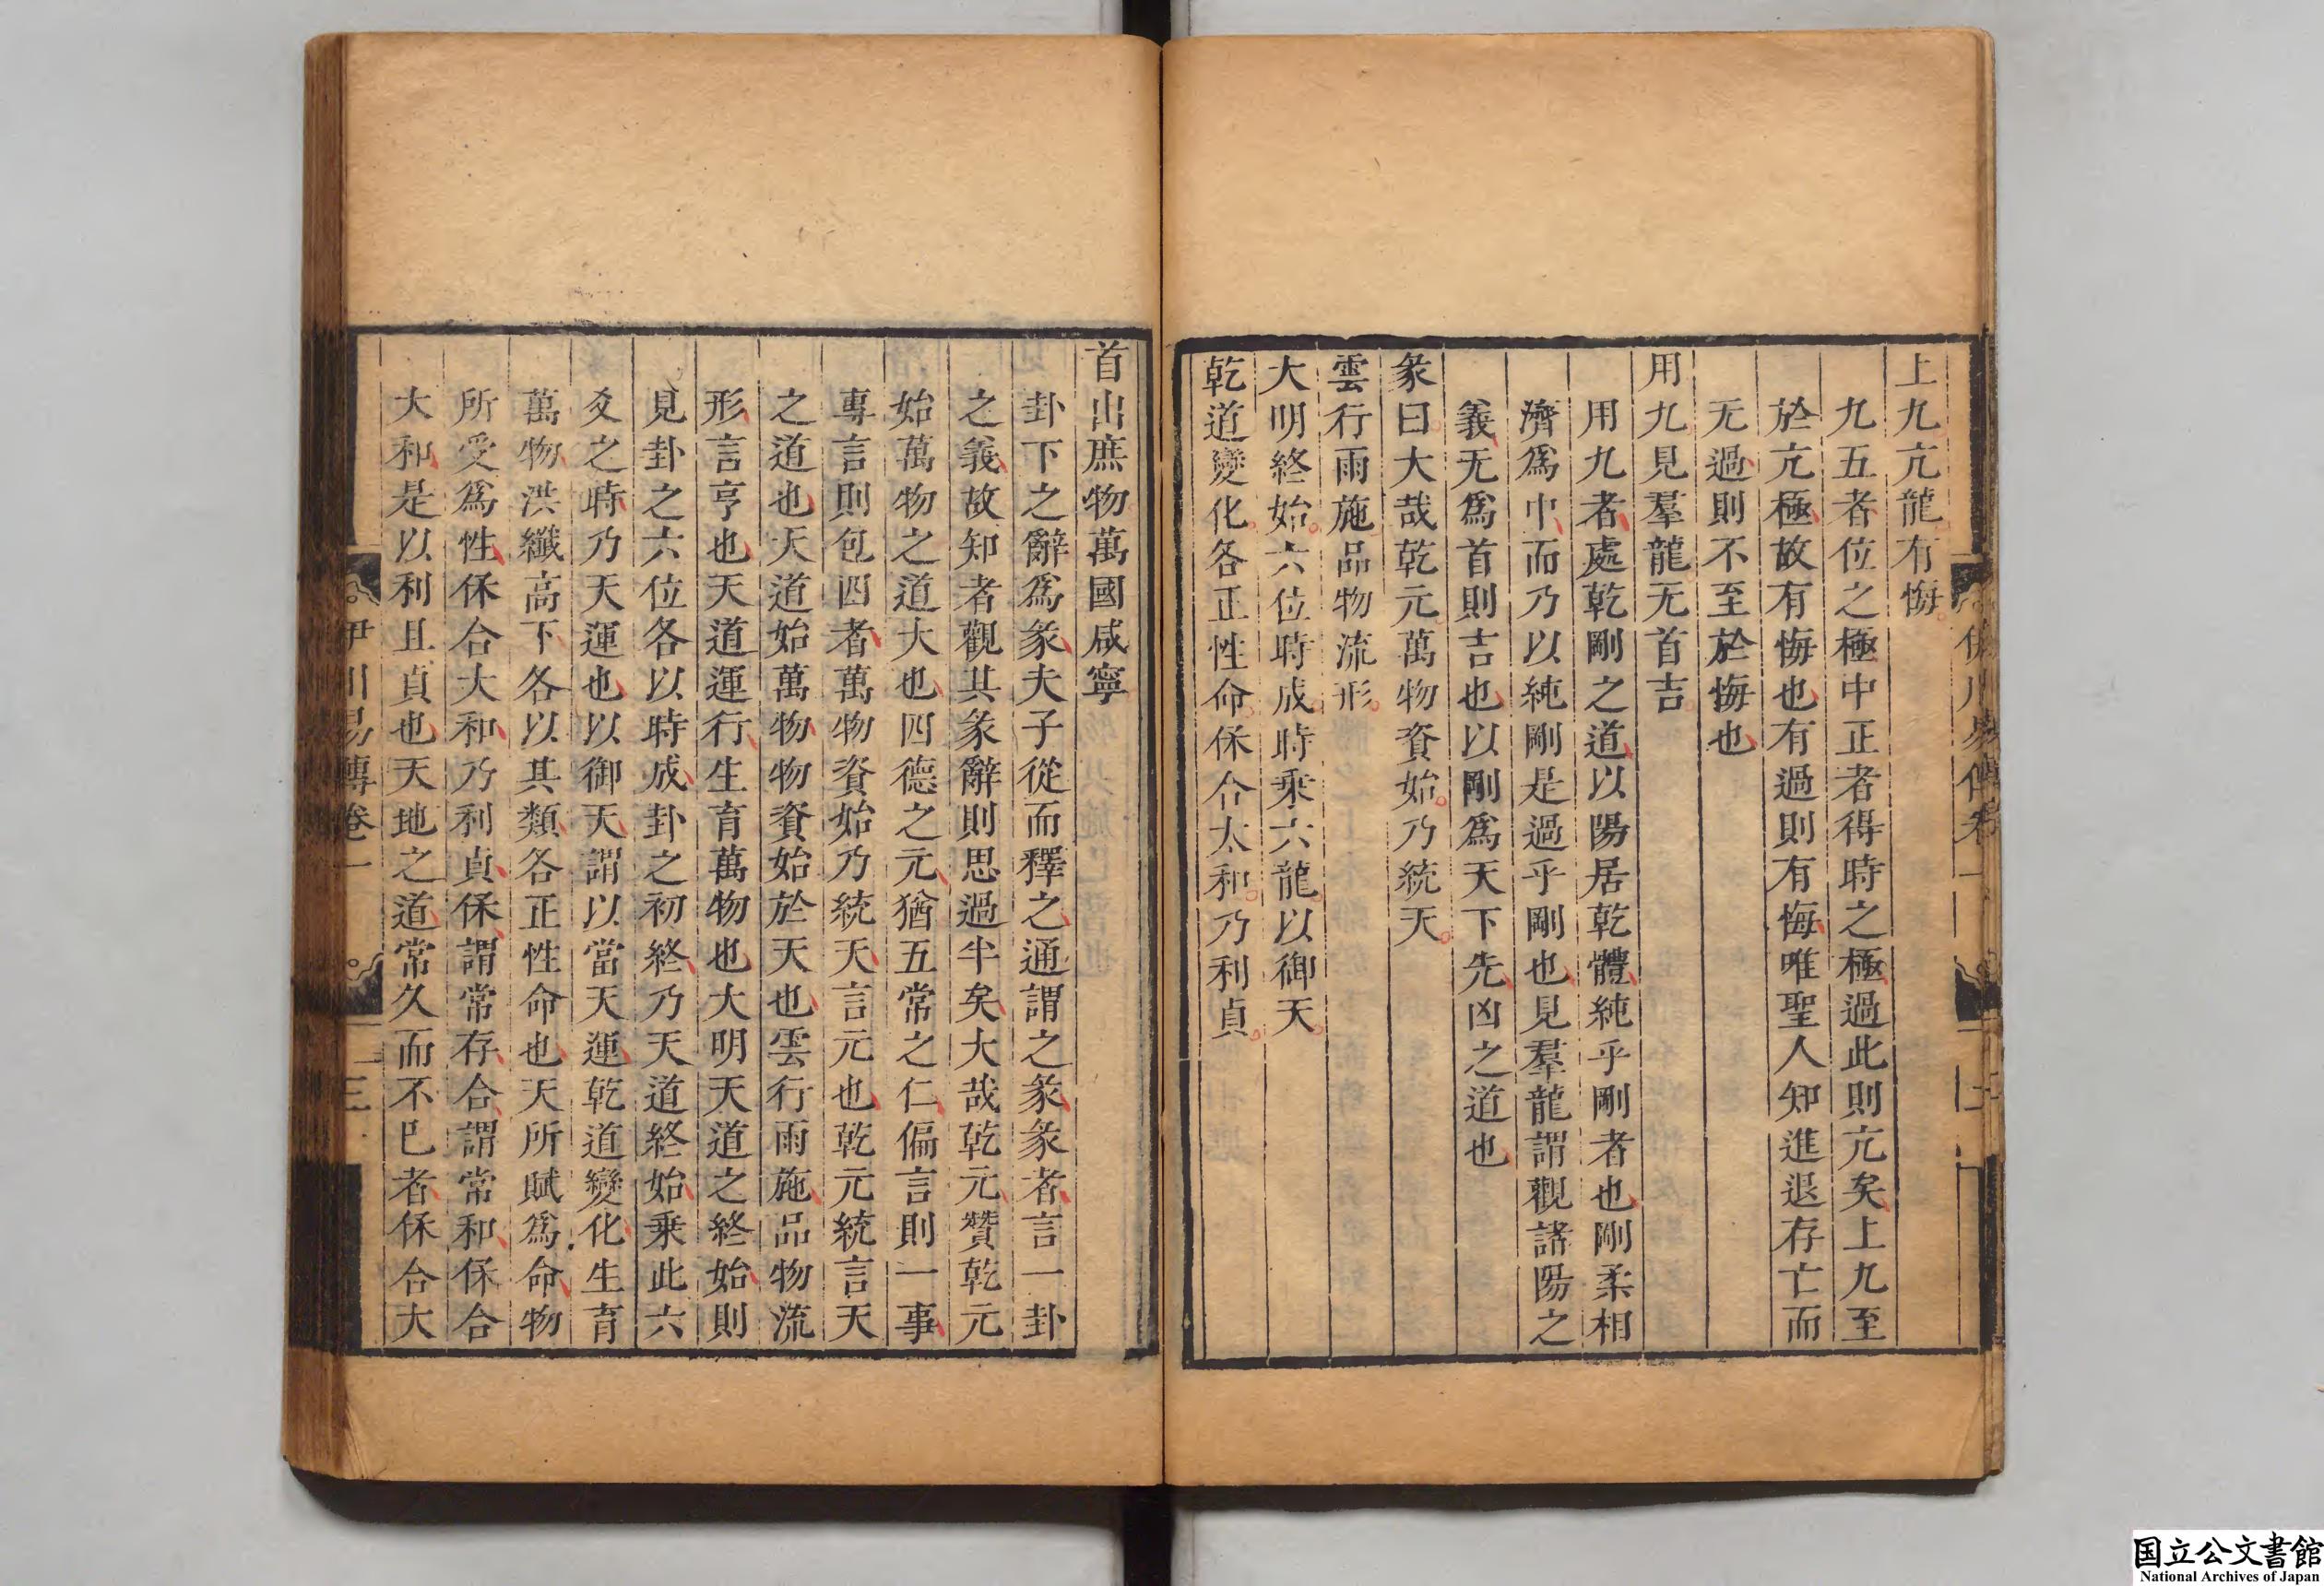 上九亢龍有悔
九五者位之極中正者得時之極過此則亢矣上九至
於亢極故有悔也有過則有悔唯聖人知進退存亡而
无過則不至於悔也
用九見羣龍无首吉
用九者處乾剛之道以陽居乾體純乎剛者也剛柔相
濟爲中而乃以純剛是過乎剛也見羣龍謂觀諸陽之
義无爲首則吉也以剛爲天下先凶之道也
彖曰大哉乾元萬物資始乃統天
雲行雨施品物流形
大明終始六位時成時乗六龍以御天
乾道變化各正性命保合太和乃利貞
首出庶物萬國咸寧
卦下之辭爲彖夫子從而釋之通謂之彖彖者言一卦
之義故知者觀其彖辭則思過半矣大哉乾元贊乾元
始萬物之道大也四德之元猶五常之仁偏言則一事
專言則包四者萬物資始乃統天言元也乾元統言天
之道也天道始萬物物資始於天也雲行雨施品物流
形言亨也天道運行生育萬物也大明天道之終始則
見卦之六位各以時成卦之初終乃天道終始乗此六
爻之時乃天運也以御天謂以當天運乾道變化生育
萬物洪纖高下各以其類各正性命也天所賦爲命物
所受爲性保合大和乃利貞保謂常存合謂常和保合
大和是以利且貞也天地之道常久而不已者保合大
伊川易傳卷一
三
国立公文書館
National Archives of Japan